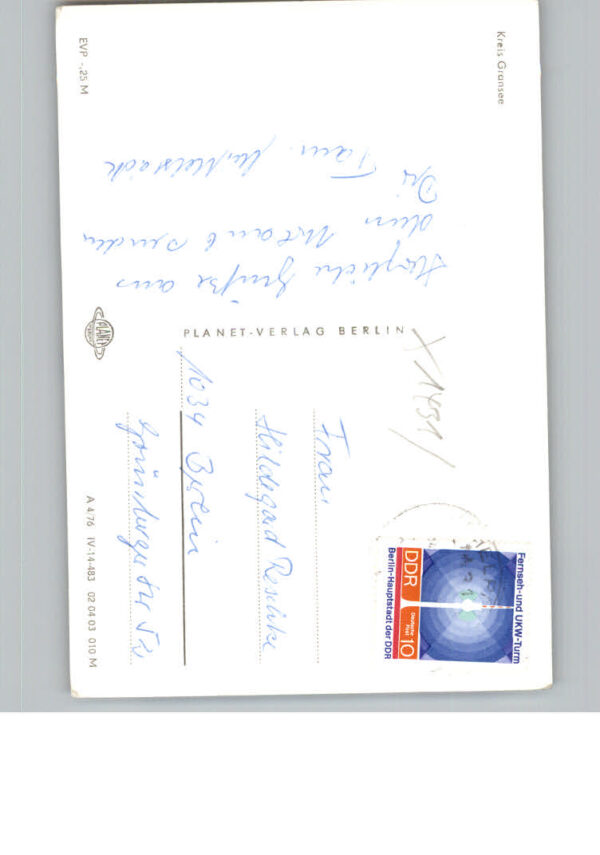 Kreis Gransee
Herzliche Grüße aus
dem Urlaub senden
Fam.
EVP -,25 M
PLANET-VERLAG BERLIN
PLANET
Fernseh- und UKW-Turm
DDR
Deutsche Post
10
Berlin-Hauptstadt der DDR
Frau
Hildegard
1034 Berlin
Grünberger Str
A 4/76 IV-14-483 02 04 03 010 M